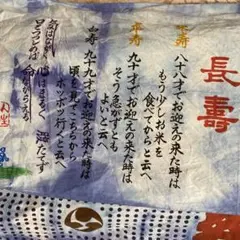 長寿
八十八才でお迎えの来た時は
もう少しお米を
食べてからと云へ
卒寿
九十才でお迎えの来た時は
そう急がずとも
よいと云へ
白寿
九十九才でお迎えの来た時は
頃を見てこちらから
ボツボツ行くと云へ
気はながく
心はまるく